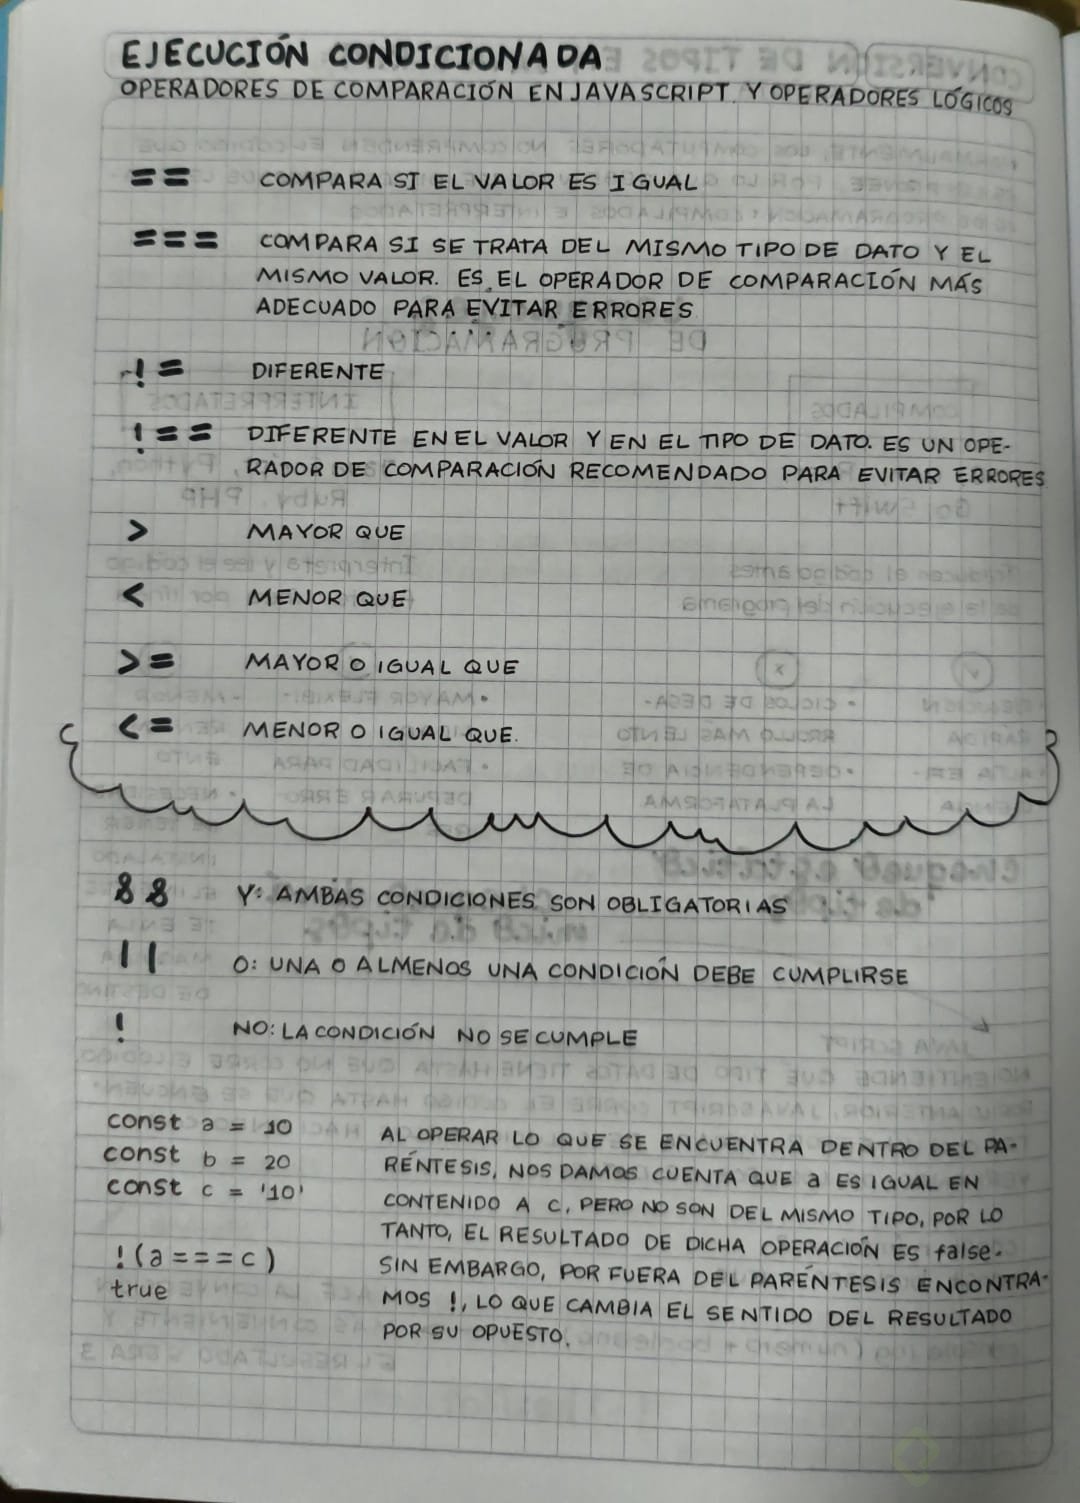 EJECUCIÓN CONDICIONADA
OPERADORES DE COMPARACIÓN EN JAVASCRIPT Y OPERADORES LÓGICOS
== COMPARA SI EL VALOR ES IGUAL
=== COMPARA SI SE TRATA DEL MISMO TIPO DE DATO Y EL
MISMO VALOR. ES EL OPERADOR DE COMPARACIÓN MÁS
ADECUADO PARA EVITAR ERRORES
!= DIFERENTE
!== DIFERENTE EN EL VALOR Y EN EL TIPO DE DATO. ES UN OPE-
RADOR DE COMPARACIÓN RECOMENDADO PARA EVITAR ERRORES
> MAYOR QUE
< MENOR QUE
>= MAYOR O IGUAL QUE
<= MENOR O IGUAL QUE.
&& Y: AMBAS CONDICIONES SON OBLIGATORIAS
|| O: UNA O ALMENOS UNA CONDICIÓN DEBE CUMPLIRSE
! NO: LA CONDICIÓN NO SE CUMPLE
const a = 10
const b = 20
const c = '10'
!(a===c)
true
AL OPERAR LO QUE SE ENCUENTRA DENTRO DEL PA-
RÉNTESIS, NOS DAMOS CUENTA QUE a ES IGUAL EN
CONTENIDO A C, PERO NO SON DEL MISMO TIPO, POR LO
TANTO, EL RESULTADO DE DICHA OPERACIÓN ES false.
SIN EMBARGO, POR FUERA DEL PARÉNTESIS ENCONTRA-
MOS !, LO QUE CAMBIA EL SENTIDO DEL RESULTADO
POR SU OPUESTO.